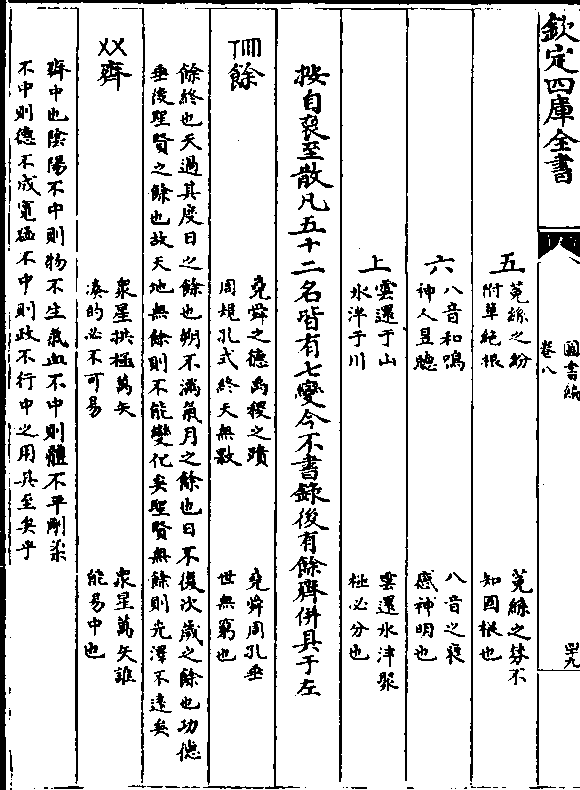 欽定四庫全書
圖書編
卷八
四十九
五
菟絲之紛
附草絶根
菟絲之紛不
知固根也
六
八音和鳴
神人昱聴
八音之裒
感神明也
上
雲還于山
氷泮于川
雲還氷泮聚
極必分也
按自裒至散凡五十二名皆有七變今不書錄後有餘齊併具于左
餘
堯舜之德禹稷之蹟
周規孔式終天無斁
堯舜周孔垂
世無窮也
餘終也天過其度日之餘也朔不滿氣月之餘也日不復次歲之餘也功德
垂後聖賢之餘也故天地無餘則不能變化矣聖賢無餘則光澤不遠矣
齊
衆星拱極萬矢
湊的必不可易
衆星萬矢誰
能易中也
齊中也陰陽不中則物不生氣血不中則體不平剛柔
不中則德不成寬猛不中則政不行中之用其至矣乎